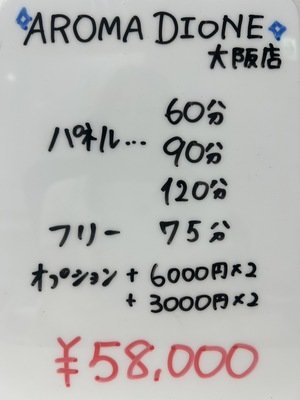 AROMA DIONE
大阪店
60分
パネル… 90分
120分
フリー 75分
オプション + 6000円×2
+ 3000円×2
¥58,000